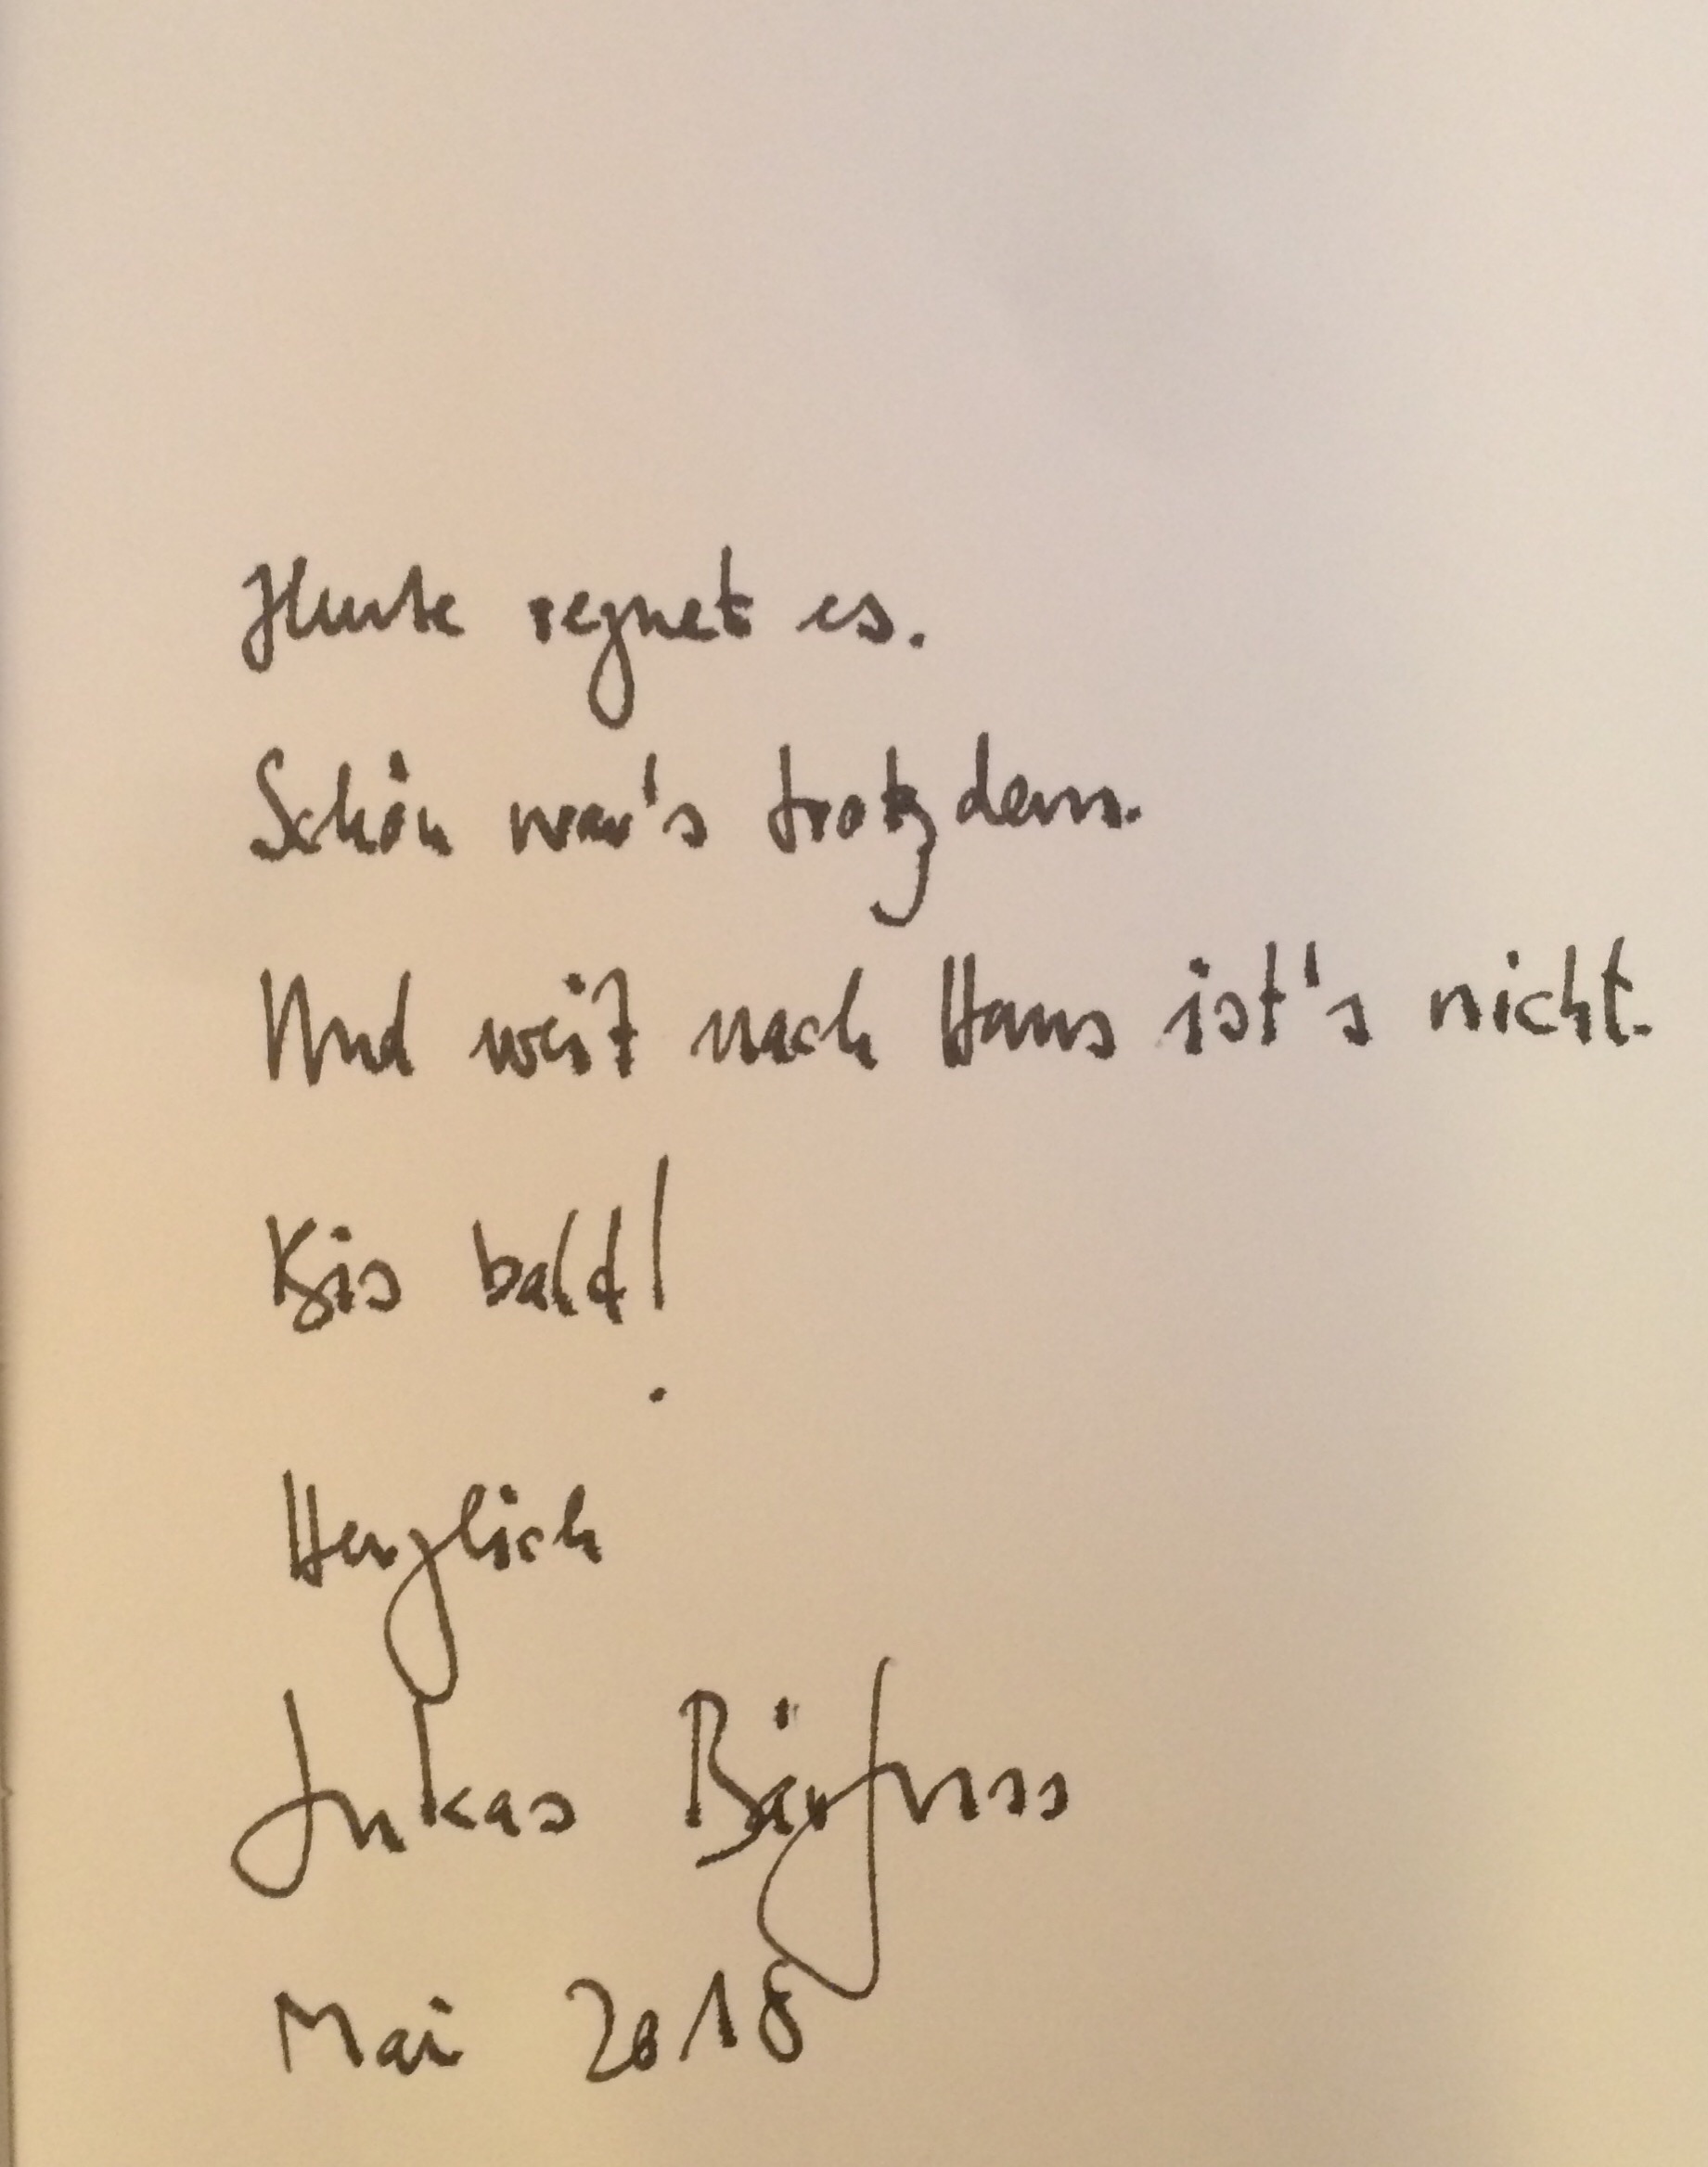 Heute regnet es.
Schön war's trotzdem.
Und weit nach Haus ist's nicht.
Bis bald!
Herzlich
Lukas Bärfuss
Mai 2018